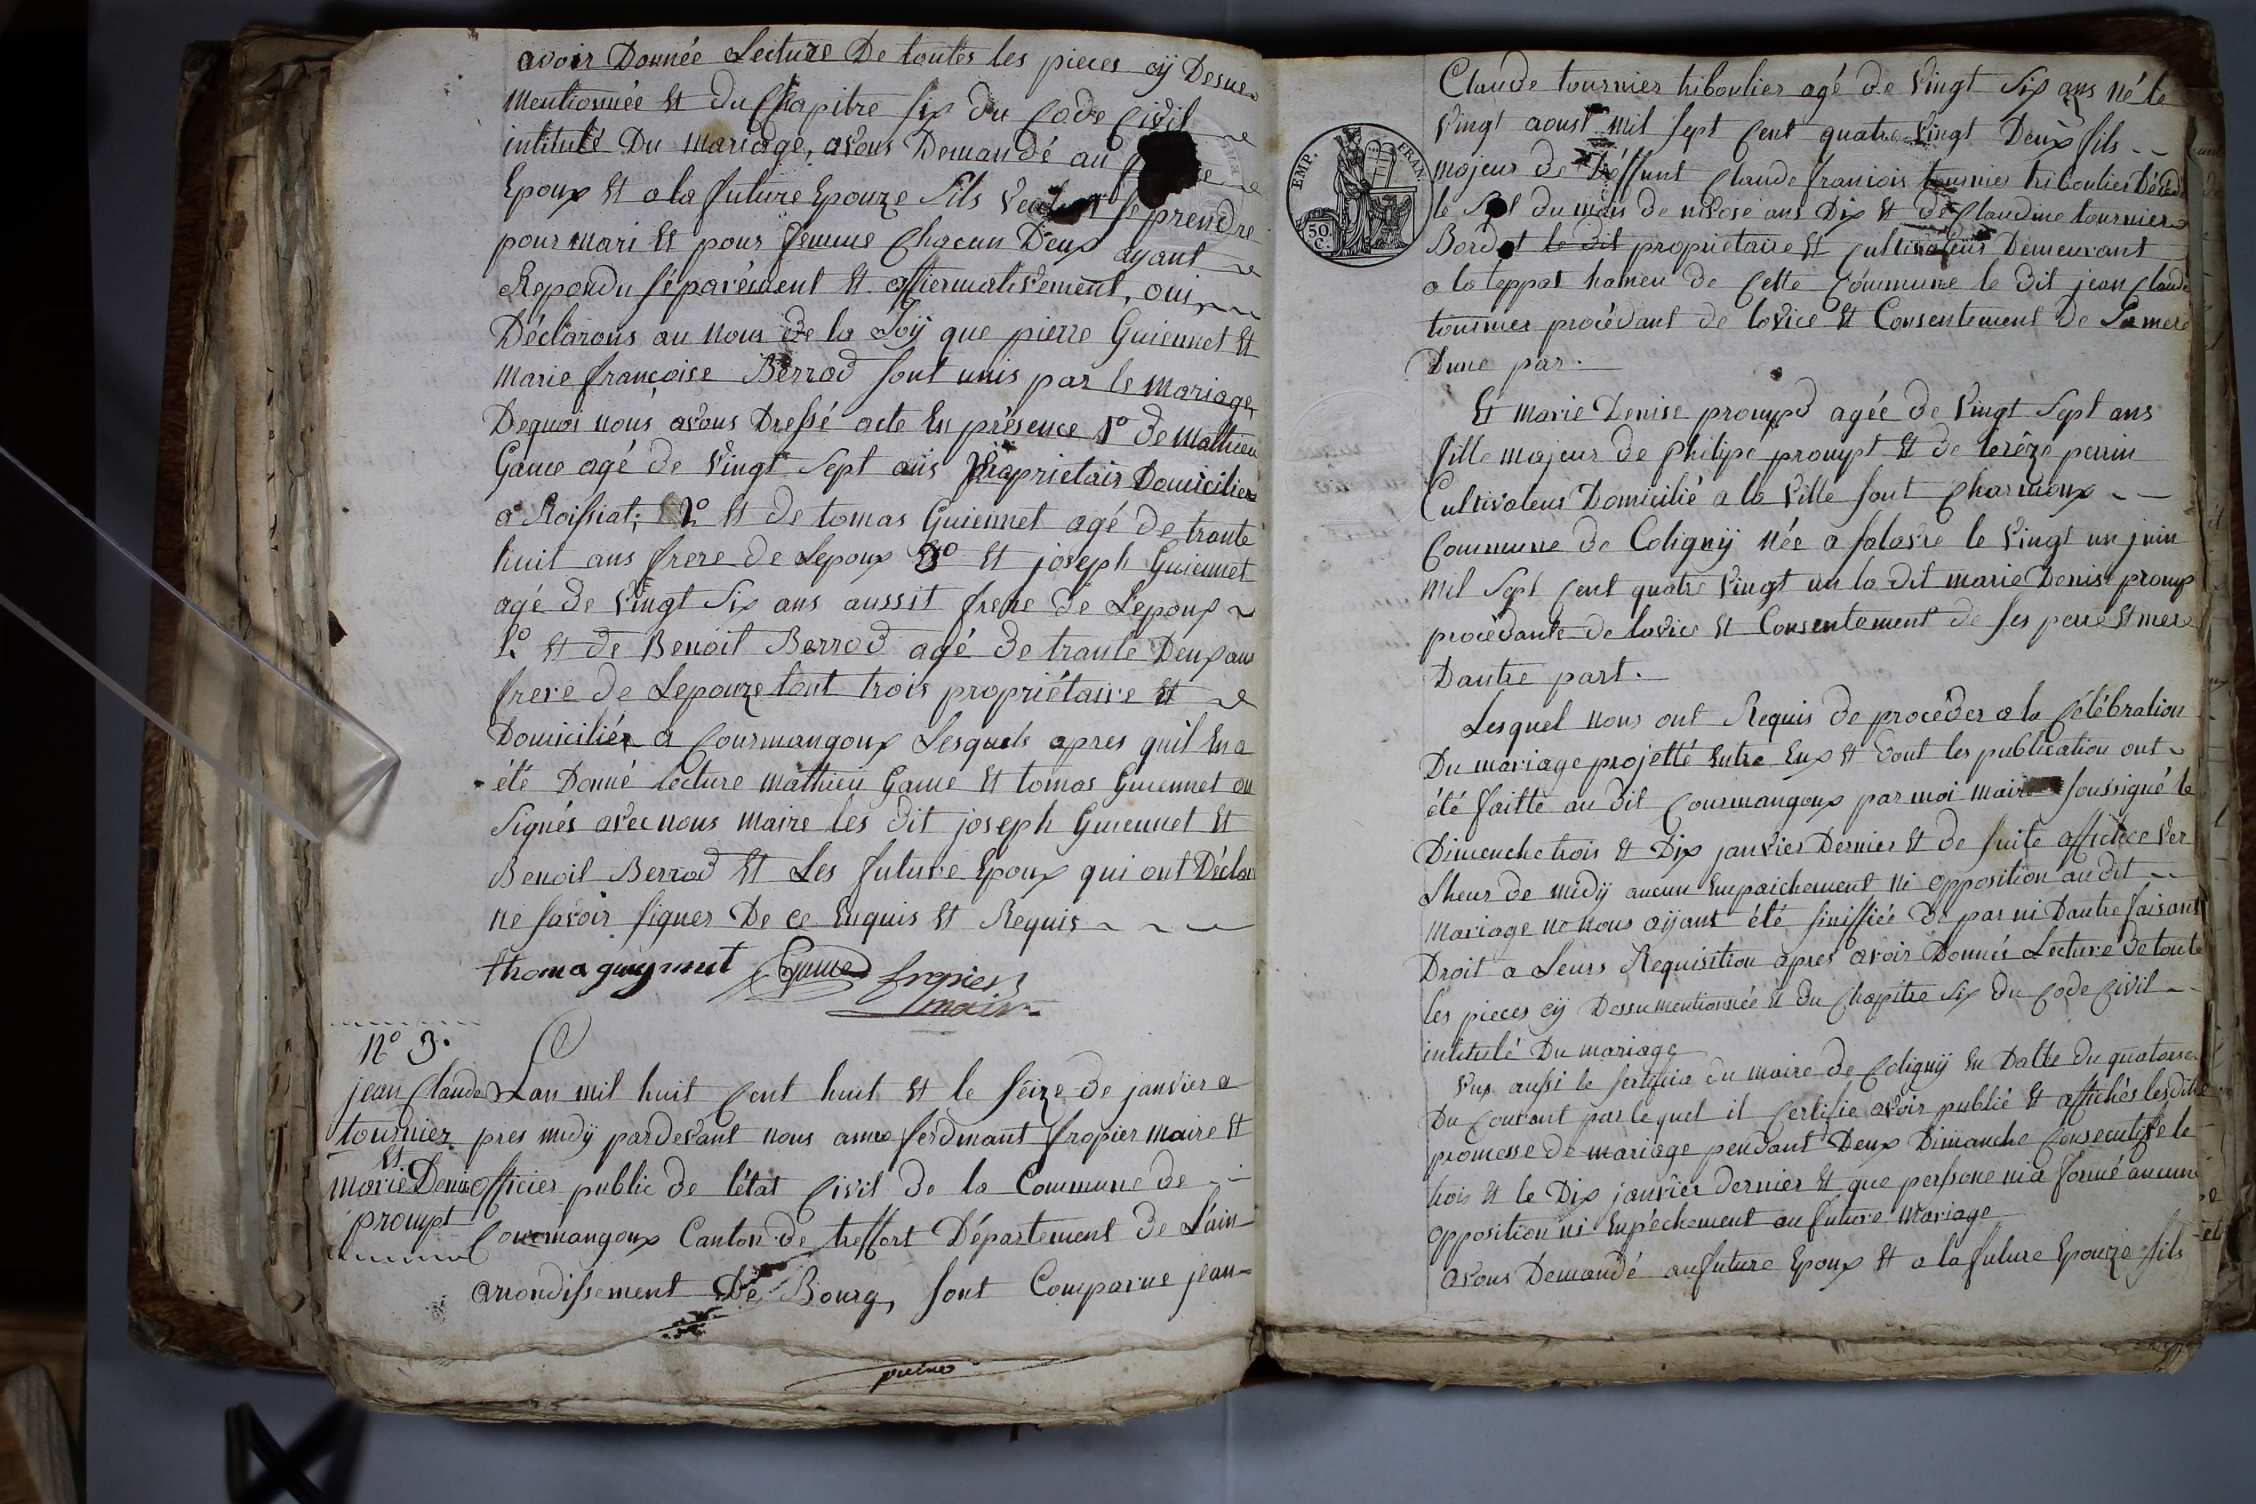 avoir Donnée Lecture De toutes les pieces cÿ Desue
mentionnée Et du Chapitre six du Code Civil
intitulé Du mariage, avons Demandé au
Epoux Et a la future Epouze sils veulent se prendre
pour mari Et pour femme Chacun Deux ayant
Repondu séparément Et affiermativement, oui
Déclarons au nom de la Loÿ que pierre Guiennet Et
Marie françoise Berrod sont unis par le mariage
Dequoi nous avons Dressé acte En présence 1º de mathieu
Game agé de vingt sept ans propriétais Domicilier
a Roissiat; 2º Et de tomas Guiennet agé de trante
huit ans frere de Lepoux 3º Et joseph Guiennet
agé de vingt six ans aussit frere de Lepoux
4º Et de Benoit Berrod agé de trante Deux ans
frere de Lepouze tout trois propriétaire Et
Domicilier a Courmangoux Lesquels apres quil En a
été Donné Lecture mathieu Game Et tomas Guiennet on
signés avec nous maire les dit joseph Guiennet Et
Benoit Berrod Et Les future Epoux qui ont Déclar
ne savoir signer De ce Enquis Et Requis
thoma guynnet Game fropier
maire
Nº 3.
jean Claude
tournier
Et
marie Denise
prompt
Lan mil huit Cent huit Et le séize de janvier a
pres midÿ pardevant nous ferdinant fropier maire Et
officier public de létat Civil de la Commune de
Courmangoux Canton de treffort Département de Lain
arondissement De Bourg, sont Comparue jean
EMP. FRAN.
50 C.
Claude tournier hiboulier agé de vingt six ans né le
vingt aoust mil sept Cent quatre vingt Deux fils
majeur de Déffunt Claude françois tournier hiboulier Décédé
le du mois de nivose ans Dix Et de Claudine tournier
Bordat le dit propriétaire Et Cultivateur Demeurant
a la teppat hameu de Cette Commune le dit jean Claude
tournier procédant de lavice Et Consentement de Sa mere
Dune par.
Et marie Denise prompd agée de vingt sept ans
fille majeur de philipe prompt Et de terèze perrin
Cultivateur Domicilié a la ville sout Charmoux
Commune de Colignÿ née a salavre le vingt un juin
mil Sept Cent quatre vingt un la dit marie Denise promp
procédante de lavice Et Consentement de ses pere Et mere
Dautre part.
Lesquel nous ont Requis de procéder a la Célébration
Du mariage projetté Entre Eux Et dont les publication ont
été faitte au dit Courmangoux par moi maire soussigné le
Dimenche trois Et Dix janvier Dernier Et de suite affichée ver
Lheur de midÿ aucun Empaichement ni opposition au dit
mariage ne nous aÿant été siniffiée de par ni Dautre faisant
Droit a Leurs Requisition apres avoir Donnés Lecture de toute
les pieces cÿ Dessu mentionnée Et du Chapitre Six du Code Civil
intitulé Du mariage
Vus aussi le sertificia du maire de Colignÿ En Datte du quatorse
Du Courant par le quel il Certifie avoir publié Et affichés lesdite
promesse de mariage pendant Deux Dimanche Consecutife le
trois Et le Dix janvier dernier Et que persone nia formé aucune
opposition ni Enpéchement au future mariage
avons Démandé au future Epoux Et a la future Epouze sils